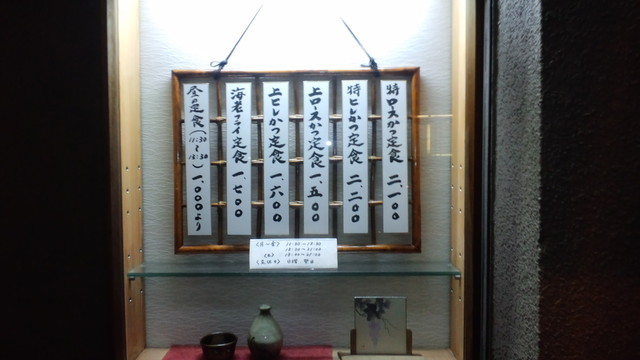 特ロースかつ定食 二、一〇〇
特ヒレかつ定食 二、二〇〇
上ロースかつ定食 一、五〇〇
上ヒレかつ定食 一、六〇〇
海老フライ定食 一、七〇〇
昼の定食(11:30〜13:30) 一、〇〇〇より